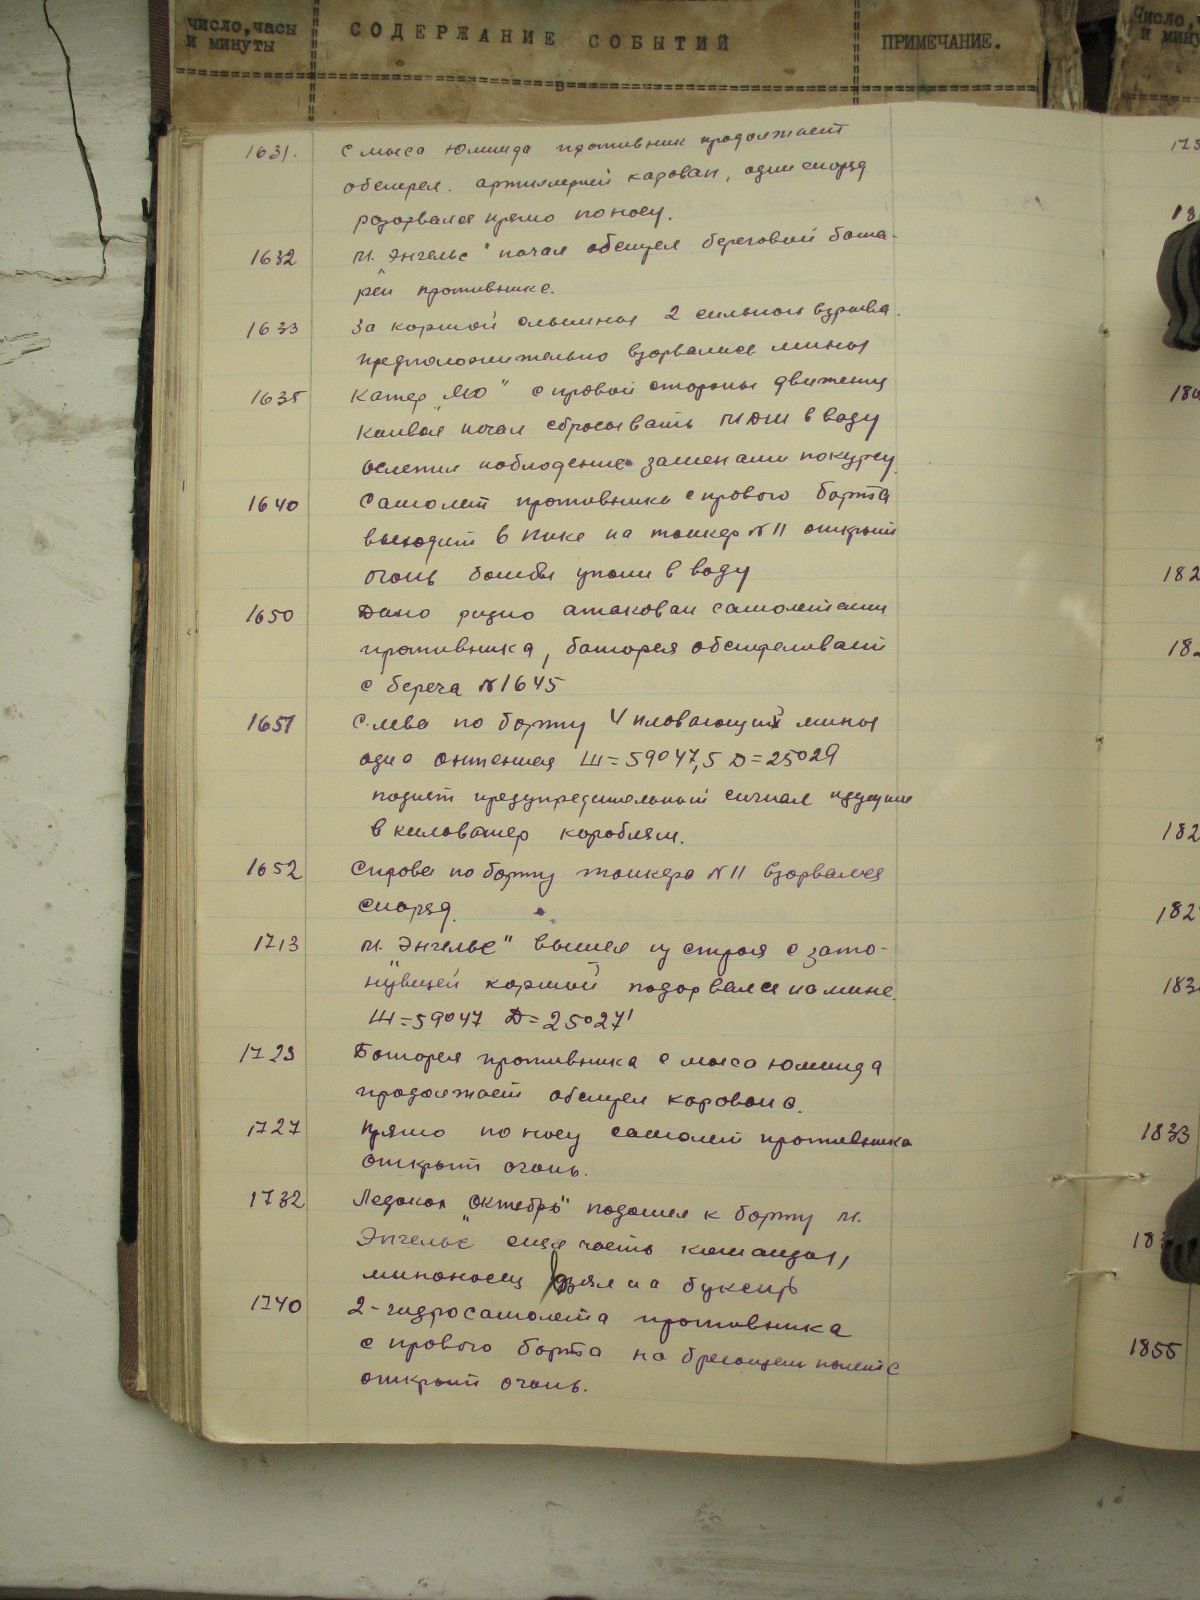 Число, часы и минуты
СОДЕРЖАНИЕ СОБЫТИЙ
ПРИМЕЧАНИЕ.
1631. с мыса Юминда противник продолжает
обстрел. артиллерией караван, один снаряд
разорвался прямо по носу.
1632 м. „Энгельс" начал обстрел береговой бата-
реи противника.
1633 За кормой слышны 2 сильных взрыва.
предположительно взорвались мины
1635 Катер „МО" с правой стороны движения
начал сбрасывать МДШ в воду
наблюдение за по курсу
1640 Самолет противника с правого борта
выходит в пике на танкер №11 открыт
огонь бомбы упали в воду
1650 Дано радио атакован самолетами
противника, батарея обстреливает
с берега №1645
1651 Слева по борту 4 плавающих мины
одна антенная Ш=59°47,5 Д=25°29
подает предупредительный сигнал идущим
в кильватер кораблям.
1652 Справа по борту танкера №11 взорвался
снаряд.
1713 м. „Энгельс" вышел из строя с зато-
нувшей кормой подорвался на мине.
Ш=59°47 Д=25°27'
1723 Батарея противника с мыса Юминда
продолжает обстрел каравана.
1727 Прямо по носу самолет противника
открыт огонь.
1732 Ледокол „Октябрь" подошел к борту м.
Энгельс часть команды,
миноносец взял на буксир
1740 2-гидросамолета противника
с правого борта на бреющем полете
открыт огонь.
1833
1855